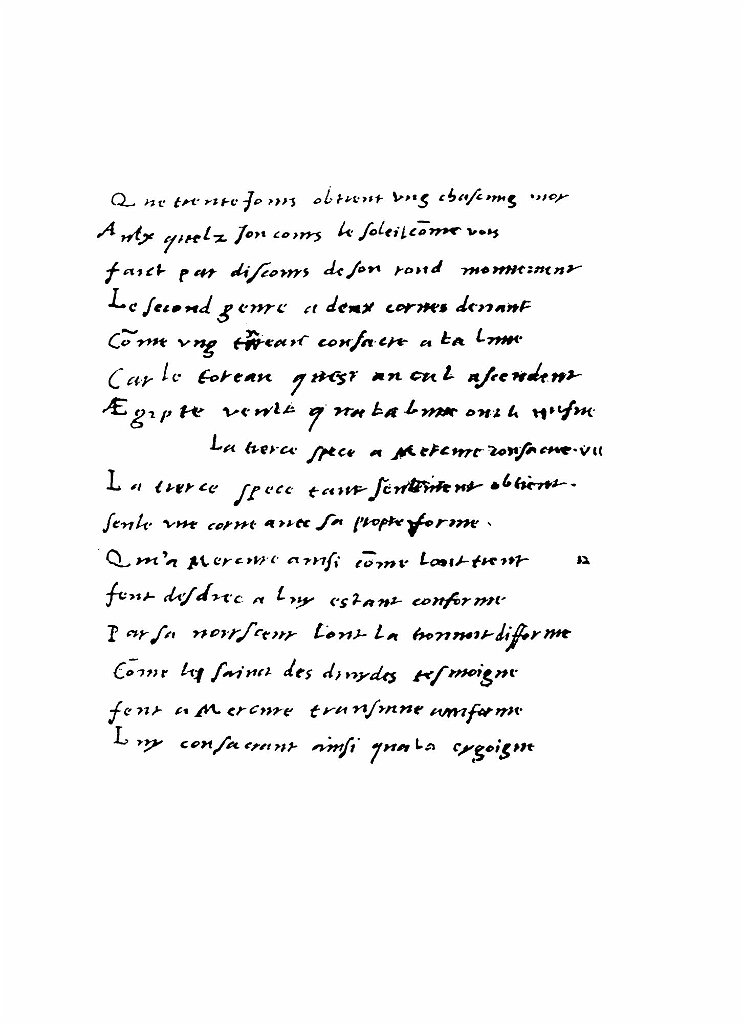 Que trente Jours obtient vng chascung moy
Aulx quelz son cours le soleil cōme voys
faict par discours de son rond mouuement
Le second genre a deux cornes deuant
Cōme vng toreau consacre a la lune
Car le toreau quest au cul ascendent
Ægipte veult qua la lune
La tierce spece a Mercure consacree . vii
La tierce spece tant sentement obtient .
seule vne corne auec sa propre forme .
Qui'a Mercure ainsi cōme lont tient 12
feut desdiee a luy estant conforme
Par sa noirsceur lont la difforme
Cōme les sainct des druydes tesmoigne
feut a Mercure uniforme
Luy consacrant ainsi qua la cygoigne